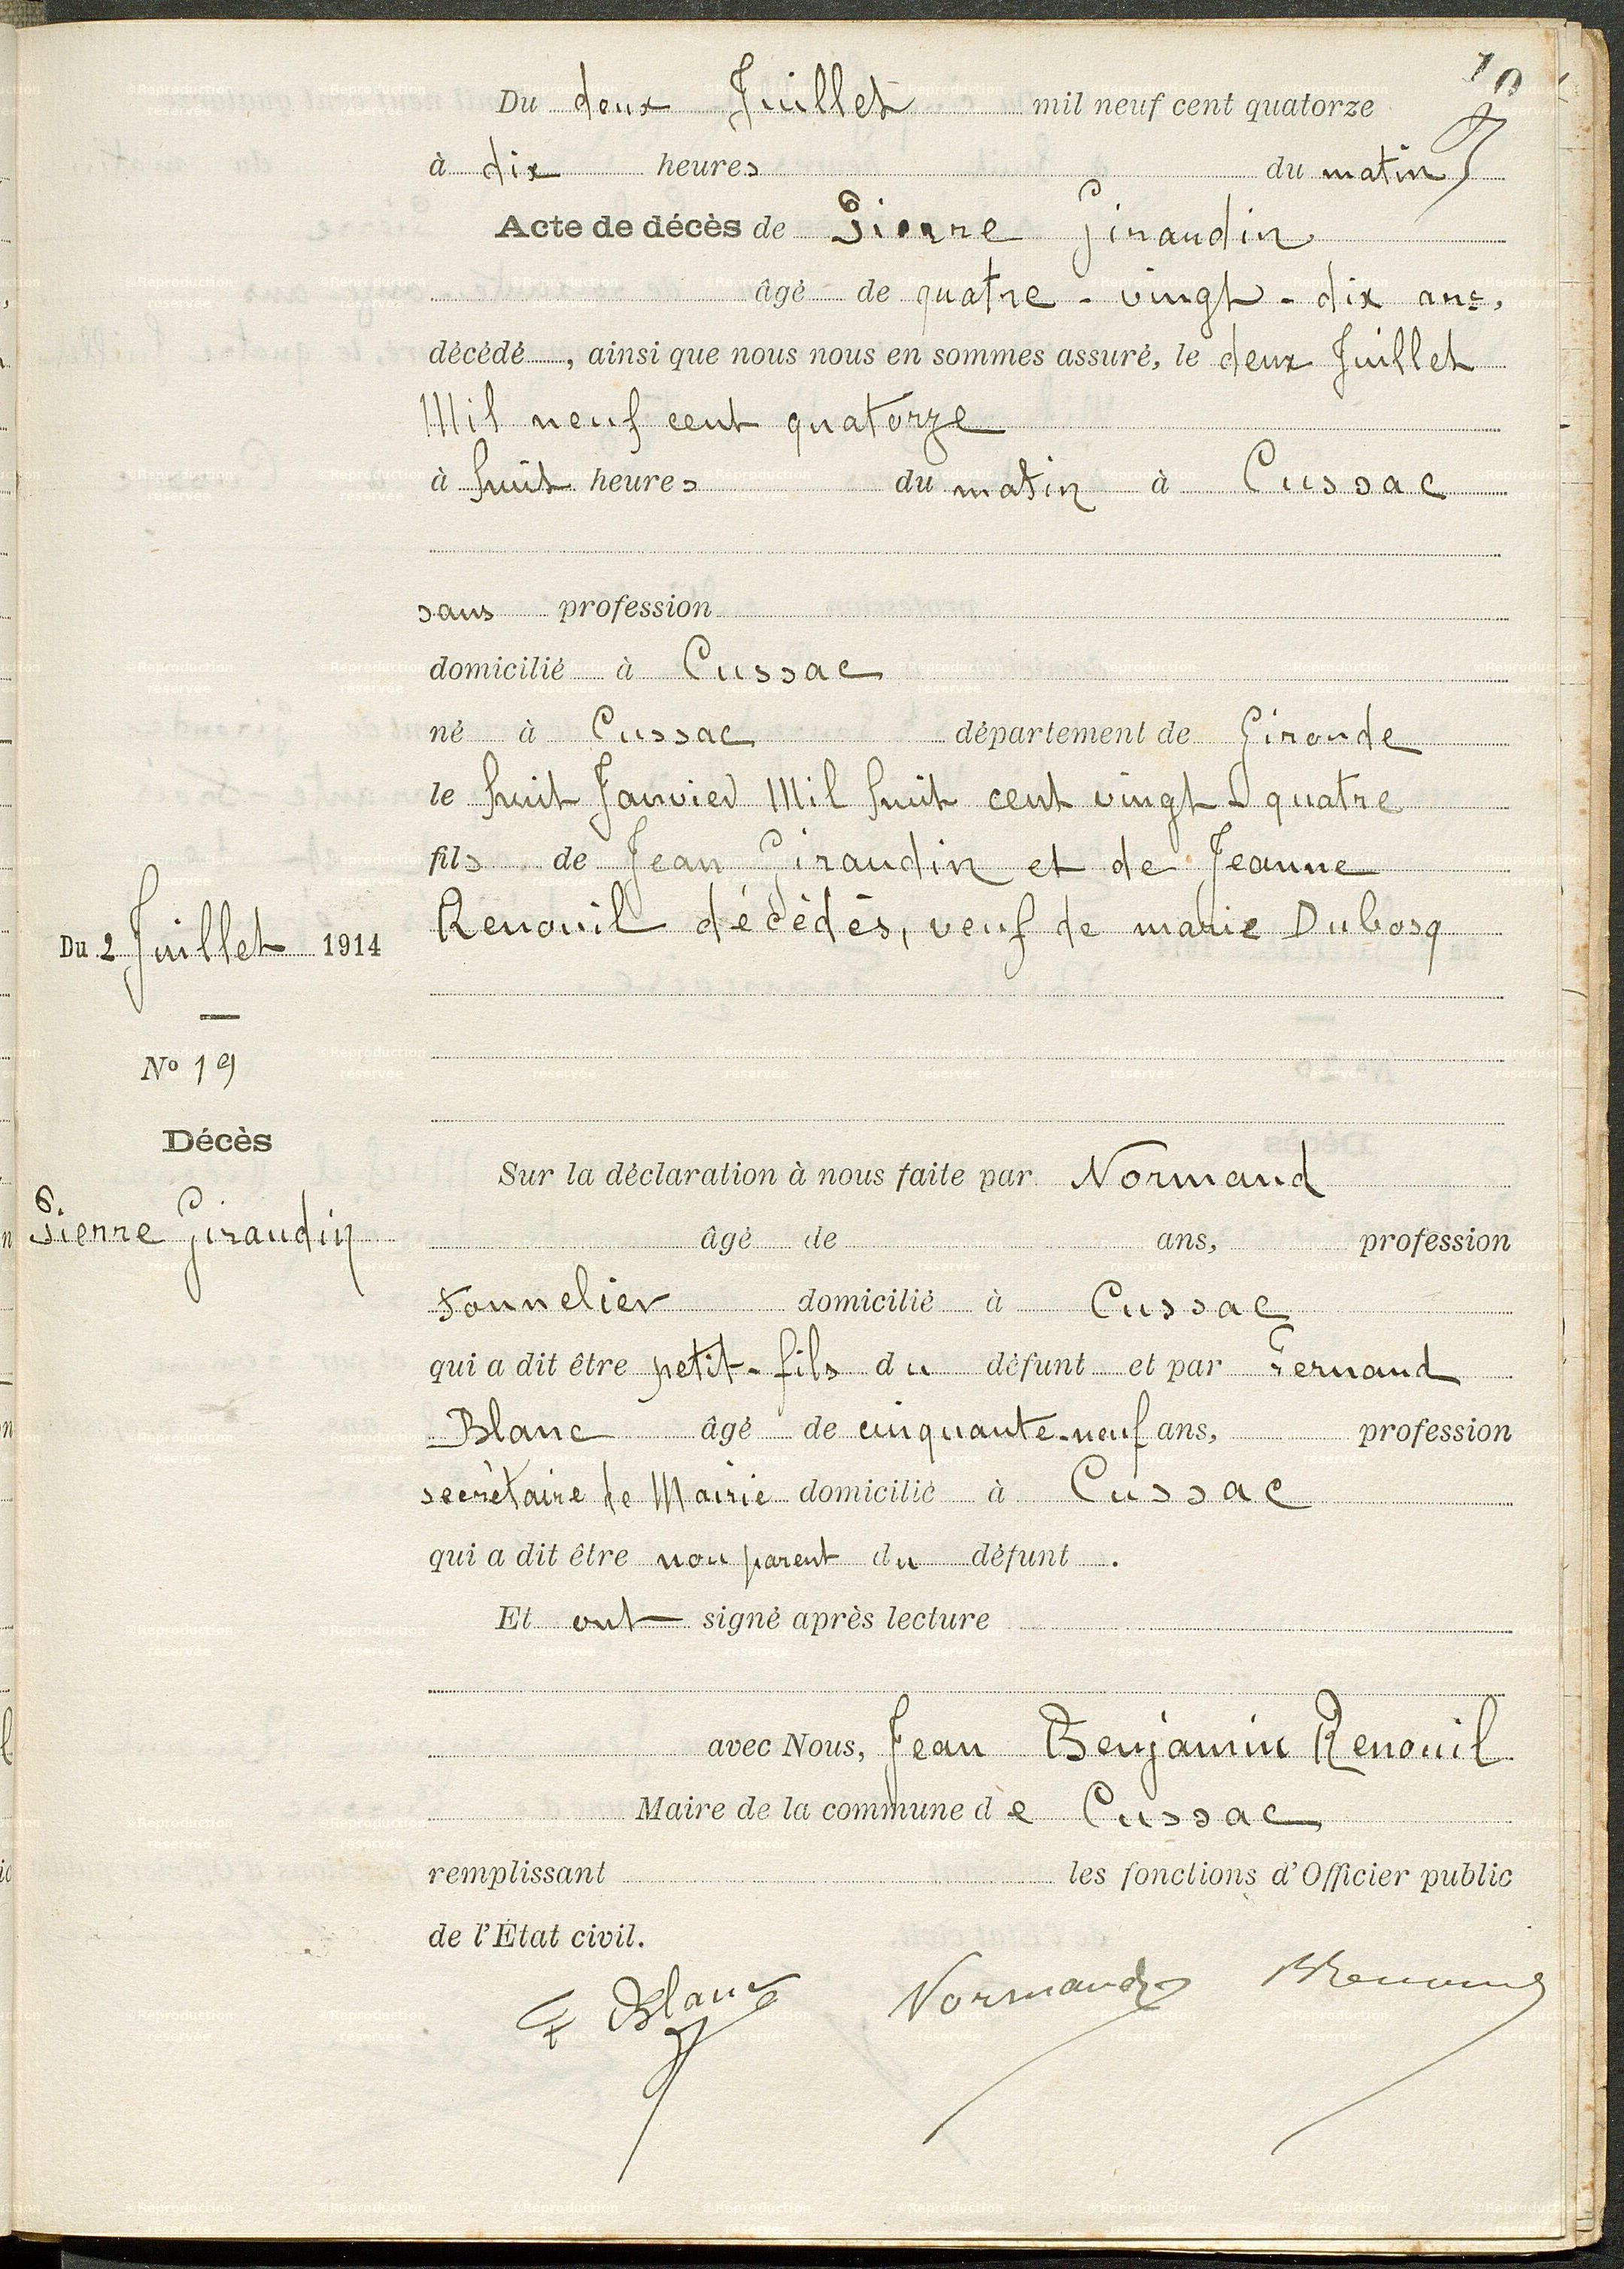 10
Du deux Juillet mil neuf cent quatorze
à dix heures du matin
Acte de décès de Pierre Giraudin
âgé de quatre-vingt-dix ans,
décédé, ainsi que nous nous en sommes assuré, le deux Juillet
Mil neuf cent quatorze
à huit heures du matin à Cussac
sans profession
domicilié à Cussac
né à Cussac département de Gironde
le huit Janvier Mil huit cent vingt quatre
fils de Jean Giraudin et de Jeanne
Renouil décédés, veuf de marie Dubosq
Du 2 Juillet 1914
No 19
Décès
Pierre Giraudin
Sur la déclaration à nous faite par Normand
âgé de ans, profession
tonnelier domicilié à Cussac
qui a dit être petit-fils du défunt et par Fernand
Blanc âgé de cinquante-neuf ans, profession
secrétaire de Mairie domicilié à Cussac
qui a dit être non parent du défunt.
Et ont signé après lecture
avec Nous, Jean Benjamin Renouil
Maire de la commune de Cussac
remplissant les fonctions d'Officier public
de l'État civil.
F Blanc Normand BRenouil